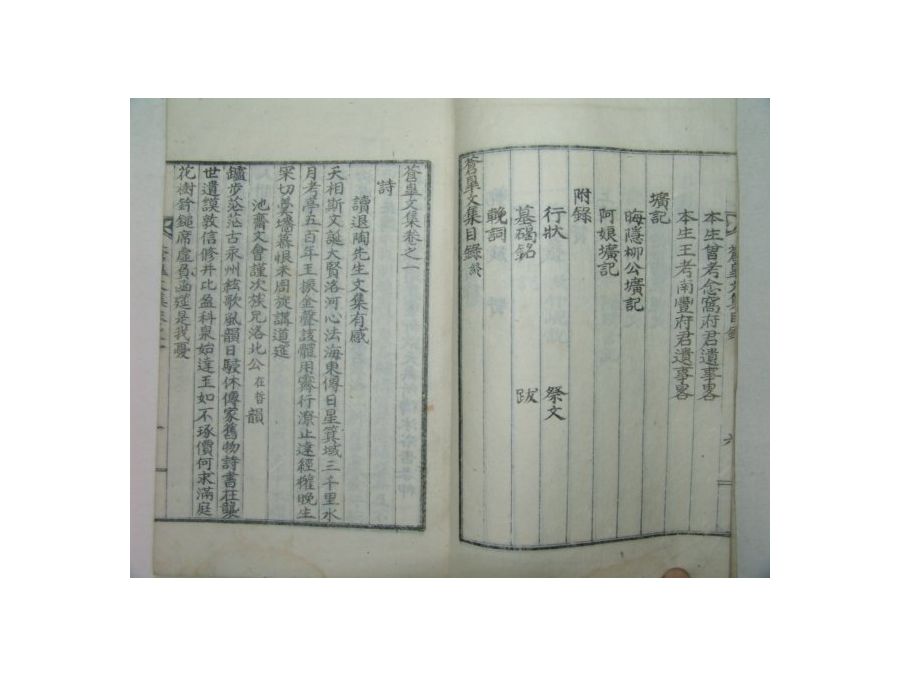 本生曾考念窩府君遺事畧
本生王考南豐府君遺事畧
壙記
晦隱柳公壙記
阿娘壙記
附錄
行狀 祭文
墓碣銘 跋
輓詞
蒼皐文集目錄終
蒼皐文集卷之一
詩
讀退陶先生文集有感
天相斯文誕大賢洛河心法海東傳日星箕域三千里水
月考亭五百年王振金聲該體用霽行潦止達經權晚生
深切羹墻慕恨未周旋講道筵
池齋文會謹次族兄洛北公在晳韻
驢步茫茫古永州絃歌風韻日駸休傳家舊物詩書在襲
世遺謨敦信修井比盈科泉始達玉如不琢價何求滿庭
花樹鈴鎚席虛負函筵是我憂